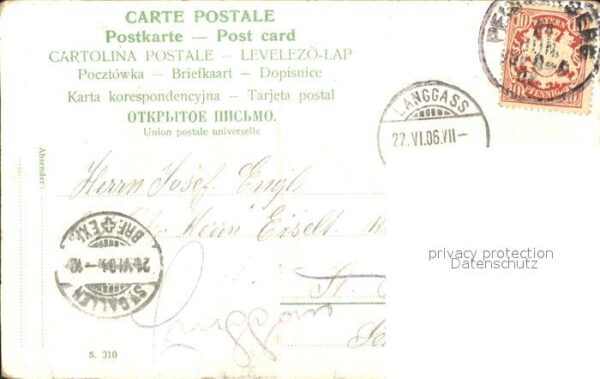 CARTE POSTALE
Postkarte — Post card
CARTOLINA POSTALE - LEVELEZŐ-LAP
Pocztówka — Briefkaart — Dopisnice
Karta korespondencyjna — Tarjeta postal
ОТКРЫТОЕ ПИСЬМО.
Union postale universelle
10 BAYERN 10
10 PFENNIG 10
LANGGASS
22.VI.06.VII—
Absender:
Herrn Josef
Herrn Eiselt
BRF. EXP.
ST GALLEN
privacy protection
Datenschutz
St.
Langgass
S. 310